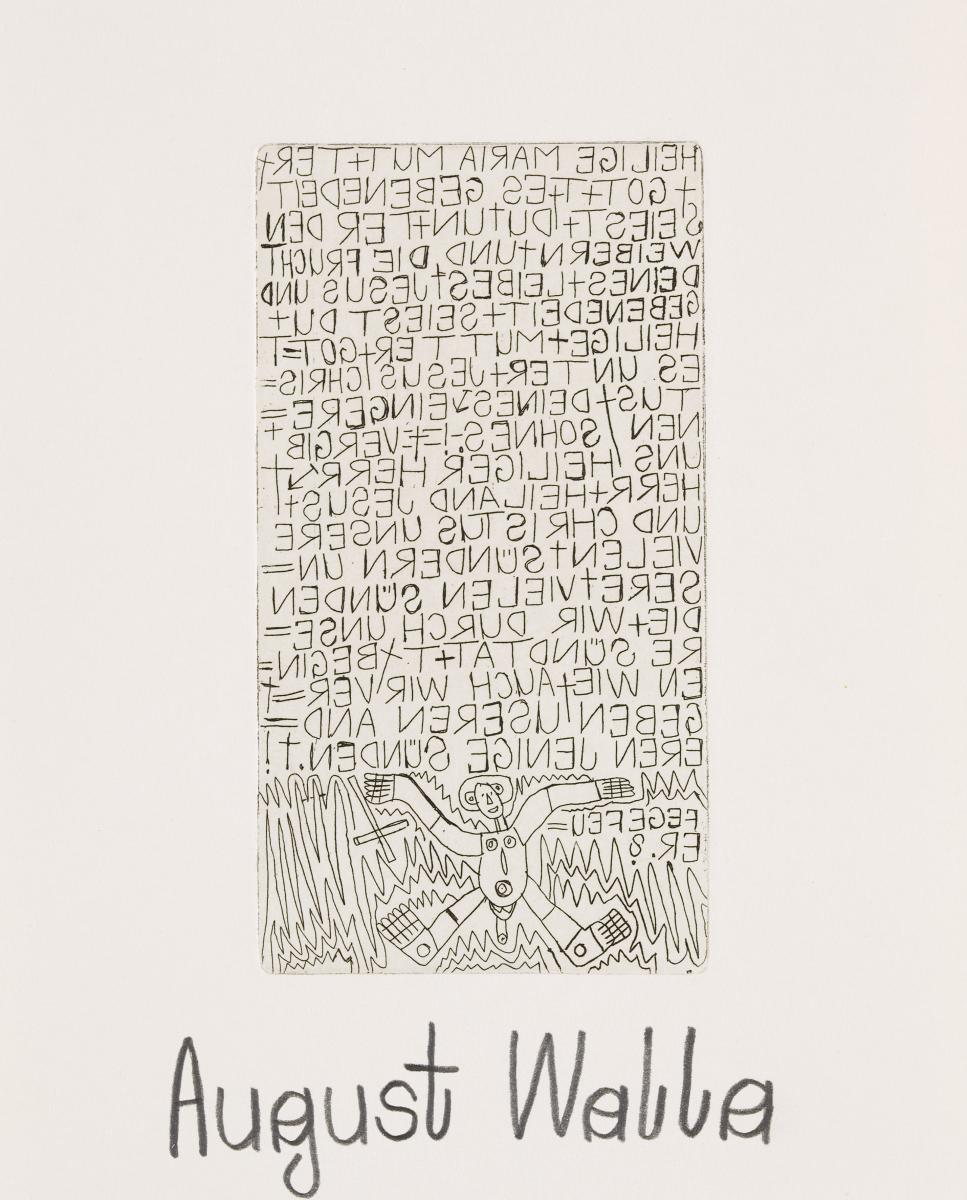 HEILIGE MARIA MUT+TER+
+ GOT+T+ES GEBENEDEIT
SEIEST+/DU†UN†T+ ER DEN
WEIBERN†UND DIE FRUCHT
DEINES+LEIBES†JESUS UND
GEBENEDEIT+SEIEST DU+
HEILIGE+MUTT ER+GOT=T
ES UNTER+JESUS/CHRIS=
TUS+DEINES↘EINGERE=
NEN/SOHNES-!=+=VERGIB+
UNS/HEILIGER HERR↘+
HERR+HEILAND JESUS+
UND CHRISTUS UNSERE
VIELEN†SÜNDERN UN=
SERE†VIELEN SÜNDEN
DIE+WIR DURCH UNSE=
RE SÜNDTAT+T\BEGIN=
EN WIE+AUCH WIR VER=+
GEBEN/UNSEREN AND=
EREN JENIGE SÜNDEN.†.!
FEGEFEU=
ER.?.
August Walla